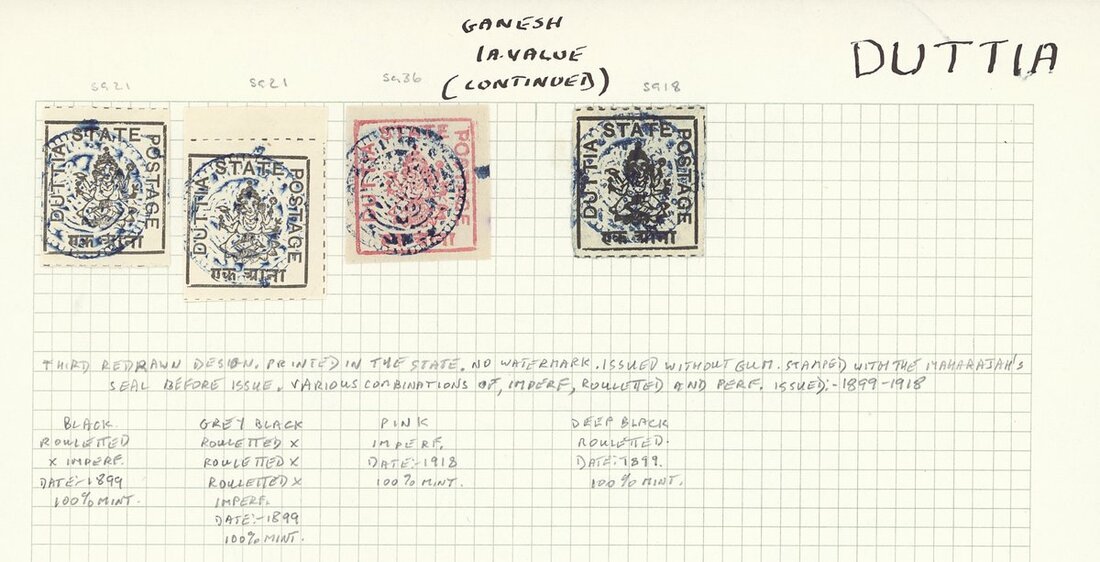 GANESH
1A. VALUE
(CONTINUED)
DUTTIA
SG21
SG21
SG36
SG18
DUTTIA STATE POSTAGE
एक आना
DUTTIA STATE POSTAGE
एक आना
DUTTIA STATE POSTAGE
DUTTIA STATE POSTAGE
एक आना
THIRD REDRAWN DESIGN. PRINTED IN THE STATE. NO WATERMARK. ISSUED WITHOUT GUM. STAMPED WITH THE MAHARAJAH'S
SEAL BEFORE ISSUE. VARIOUS COMBINATIONS OF, IMPERF, ROULETTED AND PERF. ISSUED:-1899-1918
BLACK.
ROULETTED
X IMPERF.
DATE:-1899
100% MINT.
GREY BLACK
ROULETTED X
ROULETTED X
ROULETTED X
IMPERF.
DATE:-1899
100% MINT.
PINK
IMPERF.
DATE:-1918
100% MINT.
DEEP BLACK
ROULETTED.
DATE:-1899.
100% MINT.